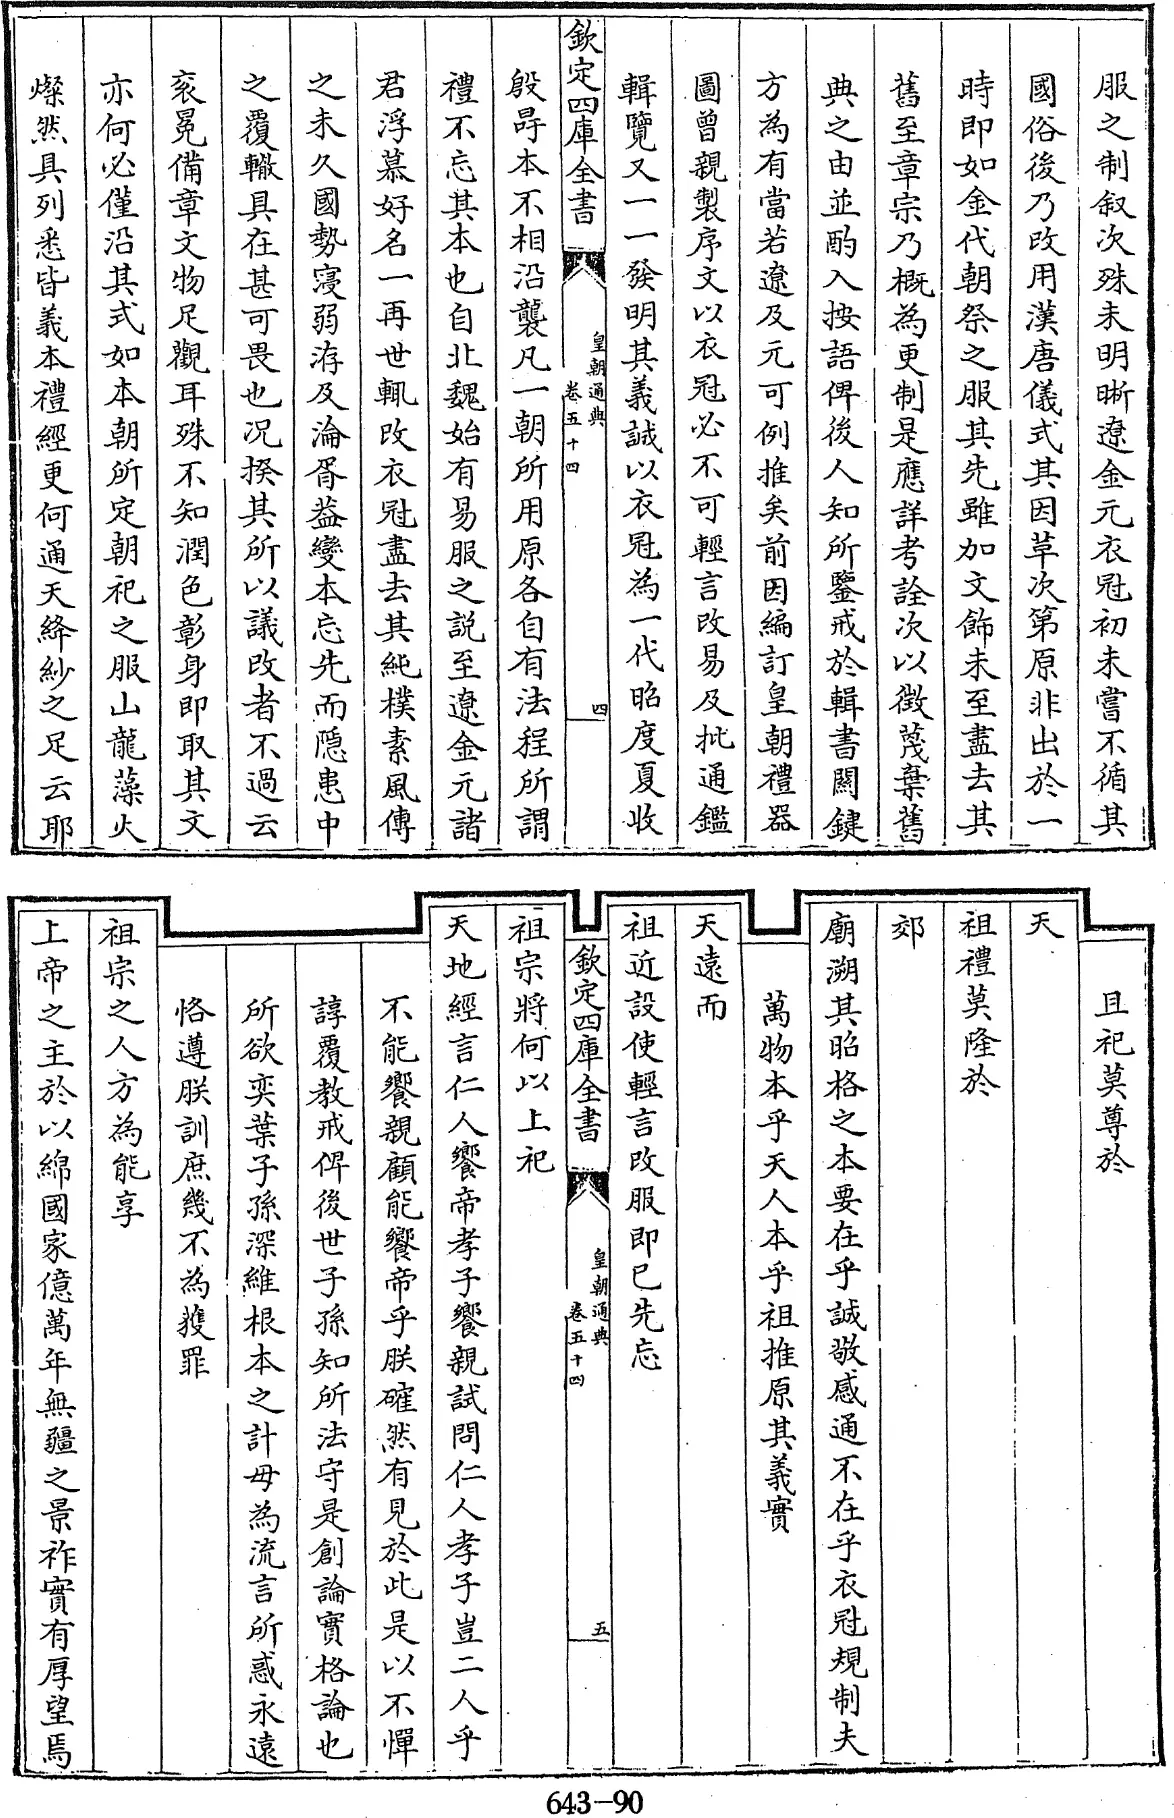 服之制叙次殊未明晰遼金元衣冠初未嘗不循其
國俗後乃改用漢唐儀式其因革次第原非出於一
時即如金代朝祭之服其先雖加文飾未至盡去其
舊至章宗乃概為更制是應詳考詮次以徵蔑棄舊
典之由並酌入按語俾後人知所鑒戒於輯書關鍵
方為有當若遼及元可例推矣前因編訂皇朝禮器
圖曾親製序文以衣冠必不可輕言改易及批通鑑
輯覽又一一發明其義誠以衣冠為一代昭度夏收
欽定四庫全書
皇朝通典
卷五十四
四
殷冔本不相沿襲凡一朝所用原各自有法程所謂
禮不忘其本也自北魏始有易服之説至遼金元諸
君浮慕好名一再世輒改衣冠盡去其純樸素風傳
之未久國勢寖弱洊及淪胥葢變本忘先而隱患中
之覆轍具在甚可畏也况揆其所以議改者不過云
衮冕備章文物足觀耳殊不知潤色彰身即取其文
亦何必僅沿其式如本朝所定朝祀之服山龍藻火
燦然具列悉皆義本禮經更何通天絳紗之足云耶
且祀莫尊於
天
祖禮莫隆於
郊
廟溯其昭格之本要在乎誠敬感通不在乎衣冠規制夫
萬物本乎天人本乎祖推原其義實
天遠而
祖近設使輕言改服即已先忘
欽定四庫全書
皇朝通典
卷五十四
五
祖宗將何以上祀
天地經言仁人饗帝孝子饗親試問仁人孝子豈二人乎
不能饗親顧能饗帝乎朕確然有見於此是以不憚
諄覆教戒俾後世子孫知所法守是創論實格論也
所欲奕葉子孫深維根本之計毋為流言所惑永遠
恪遵朕訓庶幾不為獲罪
祖宗之人方為能享
上帝之主於以綿國家億萬年無疆之景祚實有厚望焉
643-90